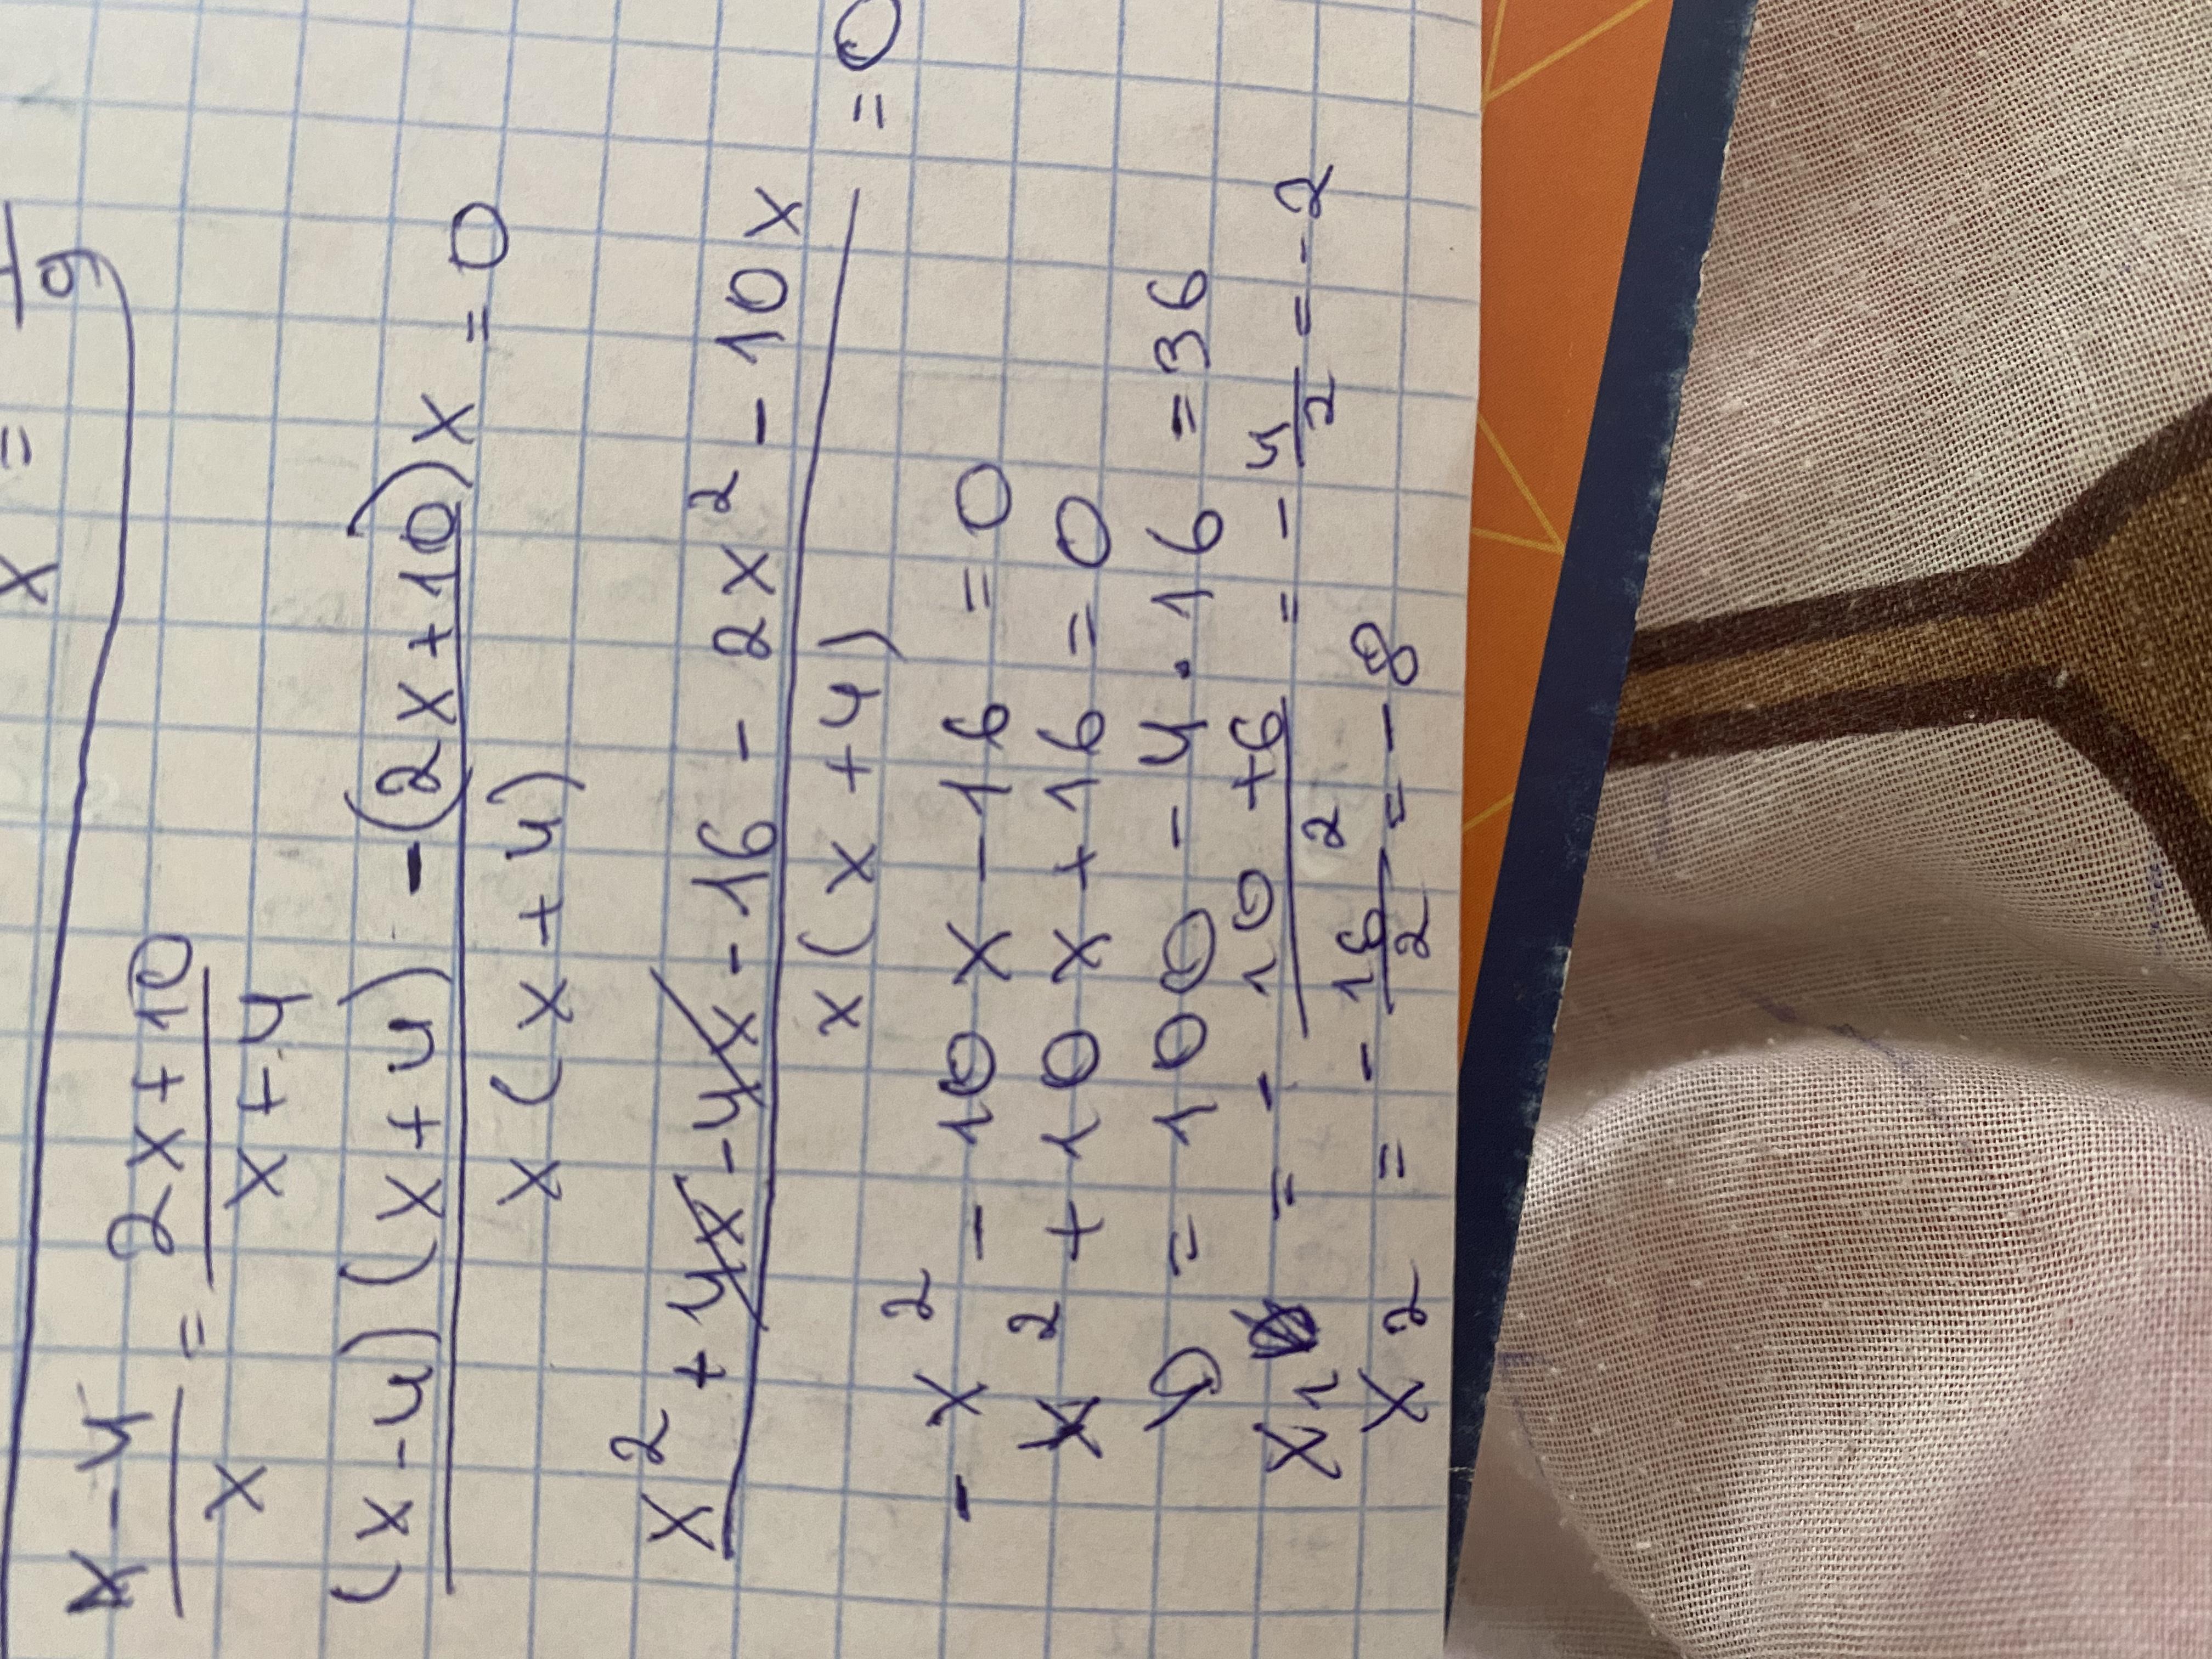 x =
9
x-4 / x = 2x+10 / x+4
(x-4)(x+4) - (2x+10)x / x(x+4) = 0
x² + 4x - 4x - 16 - 2x² - 10x / x(x+4) = 0
- x² - 10x - 16 = 0
x² + 10x + 16 = 0
D = 100 - 4 · 16 = 36
x1 = -10 +6 / 2 = - 4/2 = - 2
x2 = - 16/2 = - 8